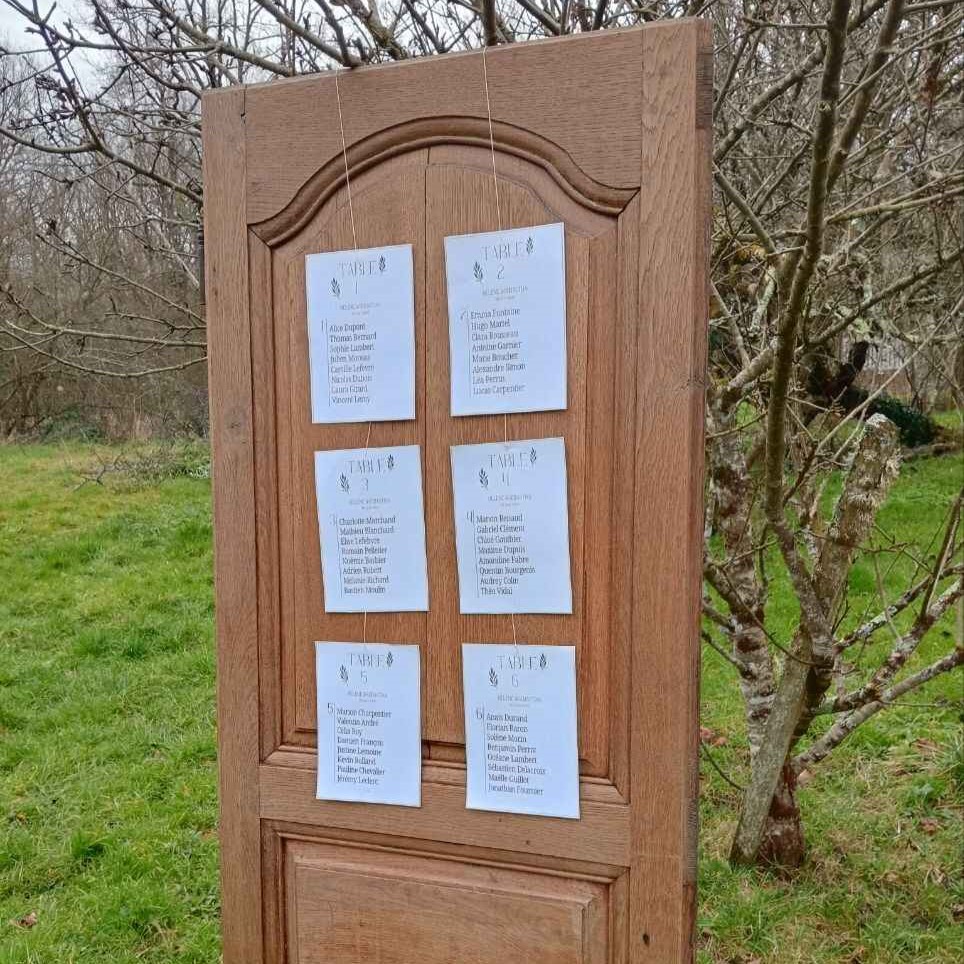 TABLE
1
1
Alice Dupont
Thomas Bernard
Sophie Lambert
Julien Moreau
Camille Lefevre
Nicolas Dubois
Laura Girard
Vincent Leroy
TABLE
2
2
Emma Fontaine
Hugo Martel
Clara Rousseau
Antoine Garnier
Marie Boucher
Alexandre Simon
Léa Perrin
Lucas Carpentier
TABLE
3
3
Charlotte Marchand
Mathieu Blanchard
Elise Lefebvre
Romain Pelletier
Noémie Barbier
Adrien Robert
Mélanie Richard
Bastien Moulin
TABLE
4
4
Manon Renaud
Gabriel Clément
Chloé Gauthier
Maxime Dupuis
Amandine Fabre
Quentin Bourgeois
Audrey Colin
Théo Vidal
TABLE
5
5
Marion Charpentier
Valentin André
Célia Roy
Damien François
Justine Lemoine
Kevin Rolland
Pauline Chevalier
Jérémy Leclerc
TABLE
6
6
Anaïs Durand
Florian Baron
Solène Morin
Benjamin Perrot
Océane Lambert
Sébastien Delacroix
Maëlle Guillot
Jonathan Fournier